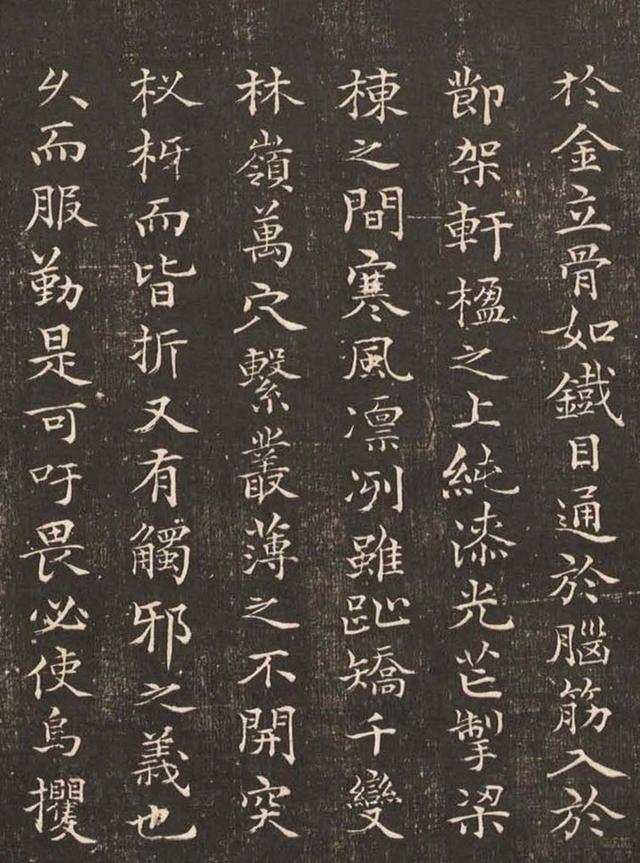 扵金立骨如鐵目通於腦筋入於
節架軒楹之上純漆光芒掣梁
棟之間寒風凛冽雖趾矯千變
林嶺萬穴繫叢薄之不開突
杈枒而皆折又有觸邪之義也
久而服勤是可吁畏必使烏攫